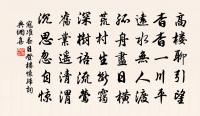 高樓聊引望
杳杳一川平
遠水無人渡
孤舟盡日横
荒村生断靄
深樹語流鶯
舊業遥清渭
沉思忽自驚
寇准春日登樓懷歸詞